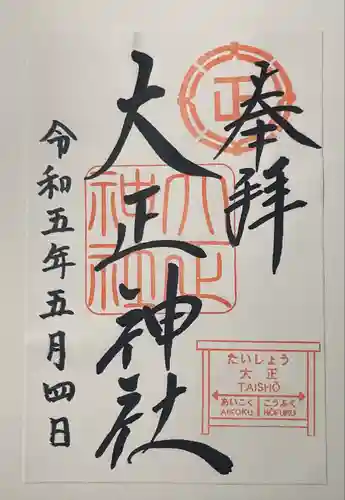 奉拝
大正神社
令和五年五月四日
大正
大正神社
たいしょう
大正
TAISHŌ
あいこく こうふく
AIKOKU KŌFUKU